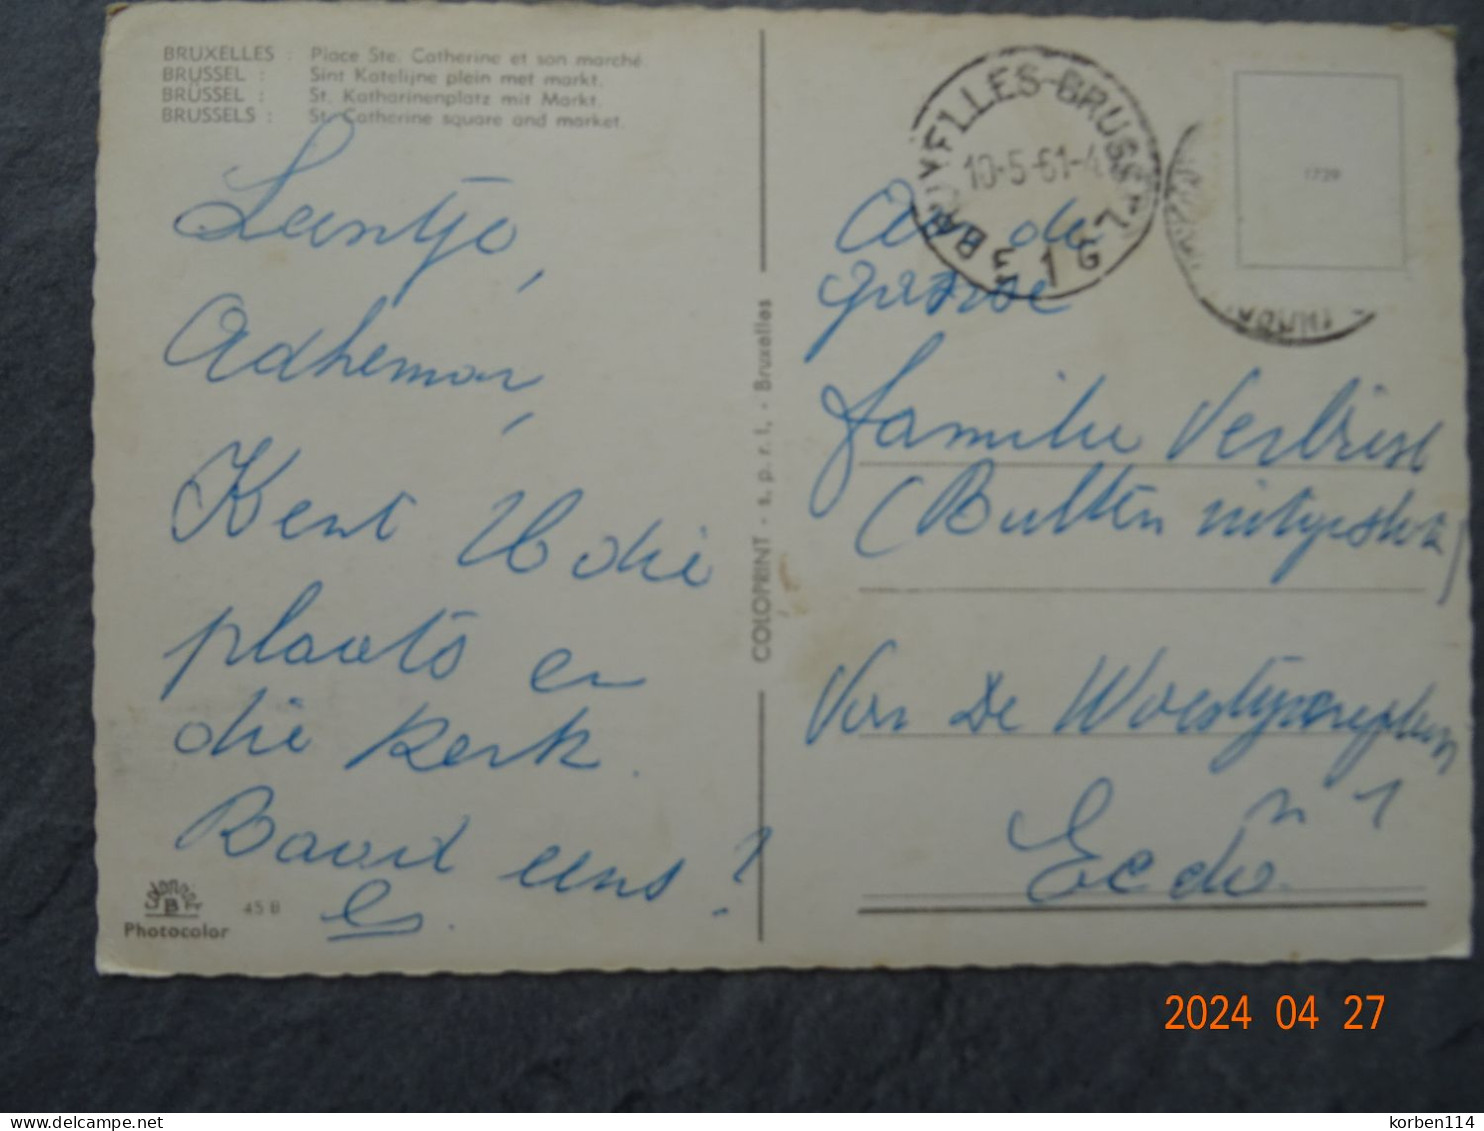 BRUXELLES : Place Ste. Catherine et son marché
BRUSSEL : Sint Katelijne plein met markt.
BRÜSSEL : St. Katharinenplatz mit Markt.
BRUSSELS : St. Catherine square and market.
Leentje,
Adhemar,
Kent U die
plaats en
die kerk.
Bavid eens?
45 B
Photocolor
COLOPRINT - s. p. r. l. - Bruxelles
BRUXELLES-BRUSSEL
10-5-61
1729
Aan de
familie
(Buiten
Van De
n 1
Eeclo
2024 04 27
korben114